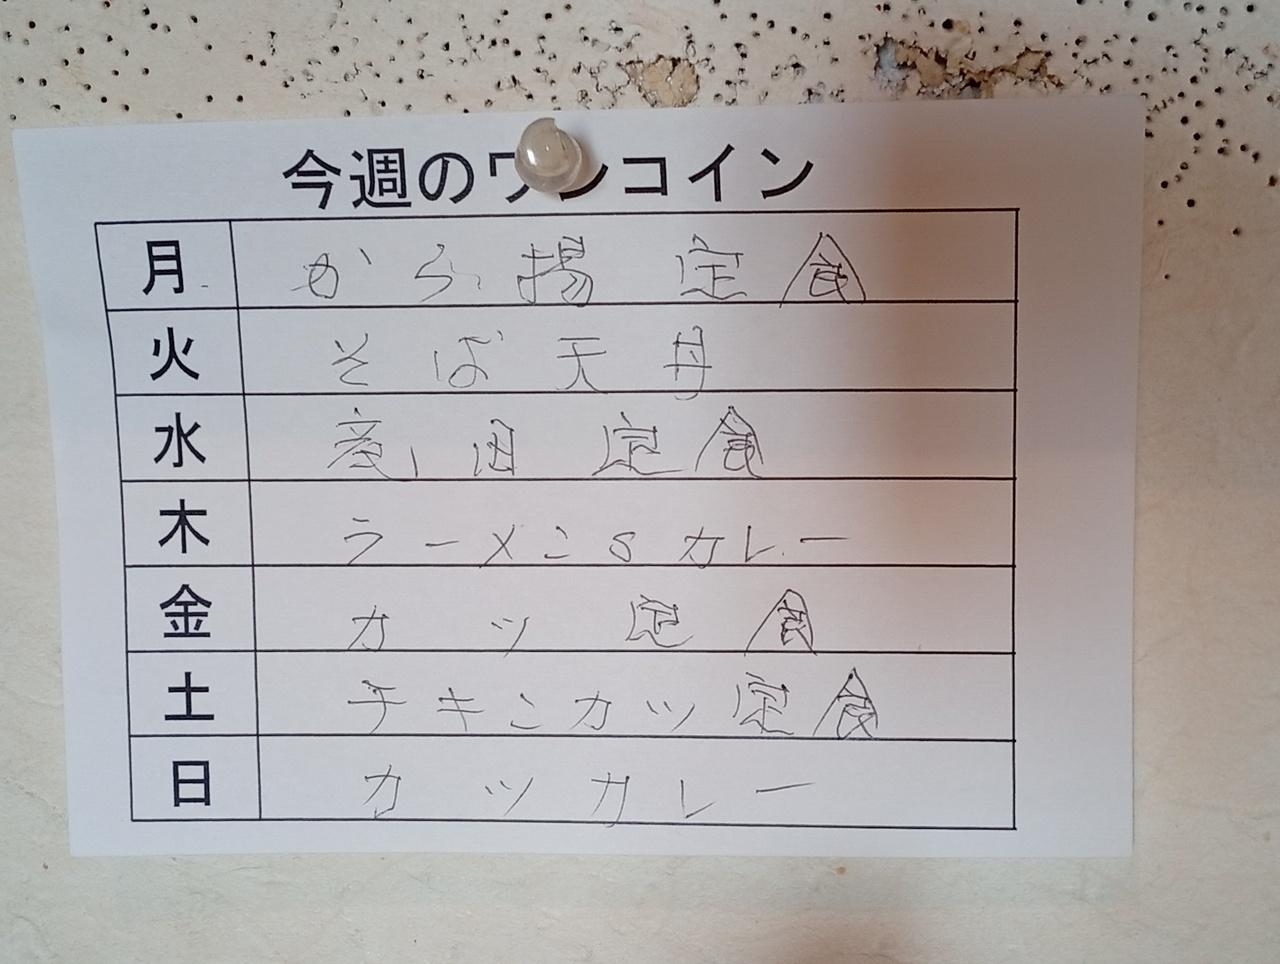 今週のワンコイン
月 から揚定食
火 そば天丼
水 定食
木 ラーメンSカレー
金 カツ定食
土 チキンカツ定食
日 カツカレー